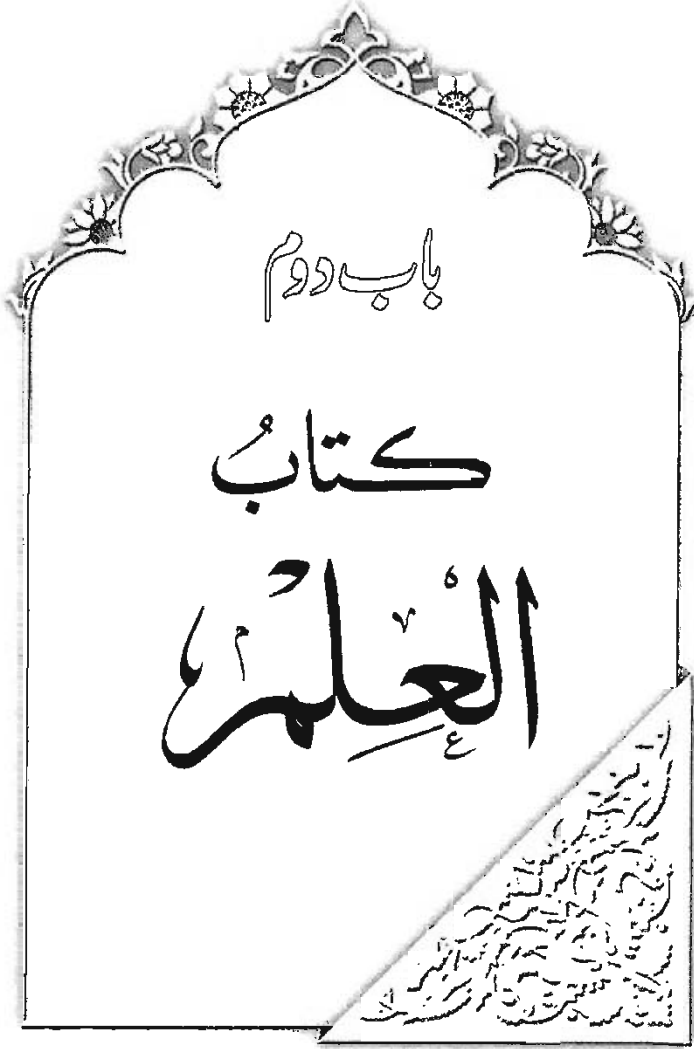 باب دوم
کتابُ
العِلْمِ